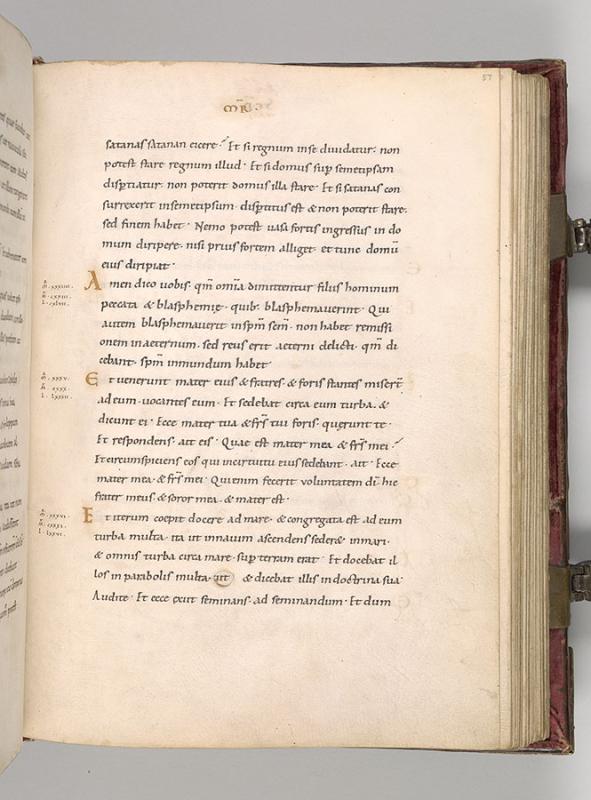 57
MR
satanas satanan eicere? Et si regnum in se diuidatur· non
potest stare regnum illud· Et si domus sup semetipsam
disptiatur· non poterit domus illa stare· Et si satanas con
surrexerit in semetipsum· disptitus est & non poterit stare·
sed finem habet· Nemo potest uasa fortis ingressus in do
mum diripere· nisi prius fortem alliget· et tunc domū
eius diripiat·
Amen dico uobis· qm̄ omnia dimittentur filiis hominum
peccata & blasphemię· quib; blasphemauerint· Qui
autem blasphemauerit in spm̄ scm̄· non habet remissi
onem in aeternum· sed reus erit aeterni delicti· qm̄ di
cebant· spm̄ inmundum habet
Et uenerunt mater eius & fratres· & foris stantes misert̄
ad eum· uocantes eum· Et sedebat circa eum turba· &
dicunt ei· Ecce mater tua & frs̄ tui foris· querunt te·
Et respondens· ait eis· Quae est mater mea & frs̄ mei?
Et circumspiciens eos qui in circuitu eius sedebant· ait· Ecce
mater mea & frs̄ mei· Qui enim fecerit uoluntatem dī· hic
frater meus & soror mea· & mater est·
Et iterum coepit docere ad mare· & congregata est ad eum
turba multa· ita ut in nauim ascendens seder& in mari·
& omnis turba circa mare· sup terram erat· Et docebat il
los in parabolis multa· & dicebat illis in doctrina sua·
Audite· Et ecce exiit seminans· ad seminandum· Et dum